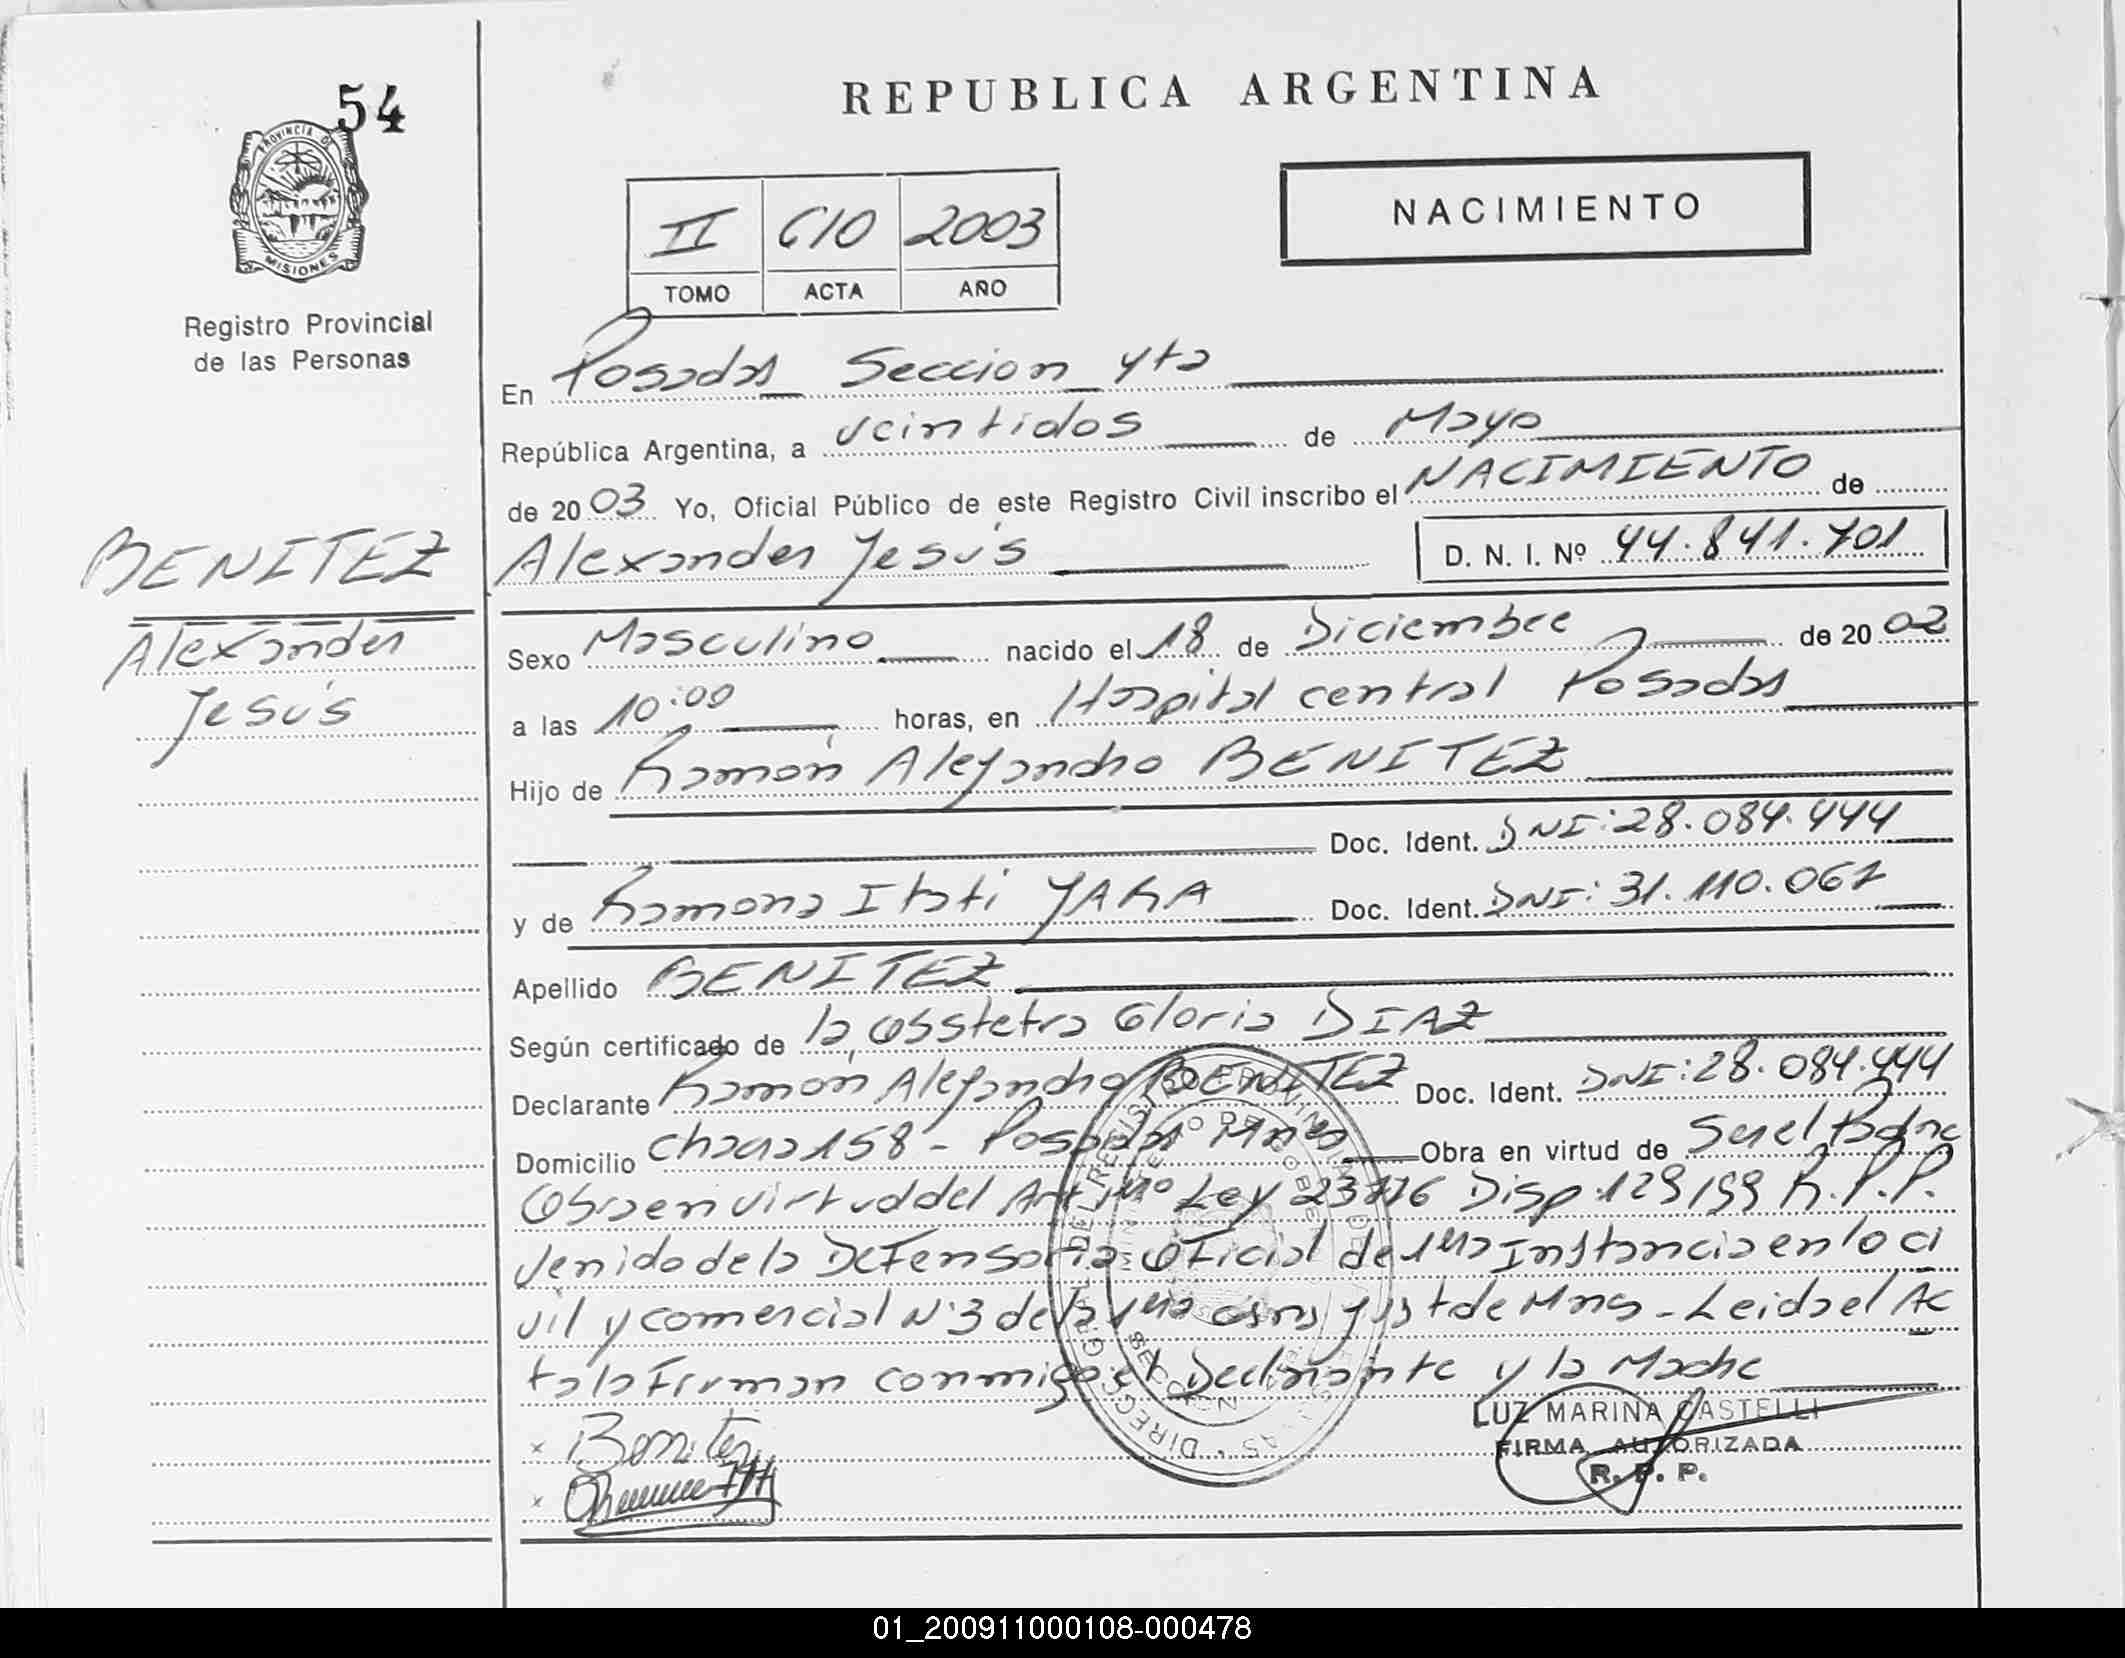 54
PROVINCIA DE
MISIONES
Registro Provincial
de las Personas
BENITEZ
Alexander
Jesús
REPUBLICA ARGENTINA
NACIMIENTO
II 610 2003
TOMO ACTA AÑO
En Posadas Seccion 4ta
República Argentina, a veintidos de Mayo
de 2003 Yo, Oficial Público de este Registro Civil inscribo el NACIMIENTO de
Alexander Jesús D. N. I. Nº 44.841.701
Sexo Masculino nacido el 18 de Diciembre de 2002
a las 10:00 horas, en Hospital central Posadas
Hijo de Ramón Alejandro BENITEZ
Doc. Ident. DNI: 28.084.444
y de Ramona Itati YARA Doc. Ident. DNI: 31.110.061
Apellido BENITEZ
Según certificado de la Obstetra Gloria DIAZ
Declarante Ramón Alejandro BENITEZ Doc. Ident. DNI: 28.084.444
Domicilio chacra 158 - Posadas Mnes Obra en virtud de Ser el Padre
Obra en virtud del Art 1ro Ley 23776 Disp. 129/99 R.P.P.
venido de la Defensoria Oficial de 1ra Instancia en lo ci
vil y comercial Nº 3 de la 1ra Just de Mnes - Leida el Ac
ta la Firman conmigo el Declarante y la Madre
x Benitez
x
LUZ MARINA CASTELLI
FIRMA AUTORIZADA
R. P. P.
01_200911000108-000478